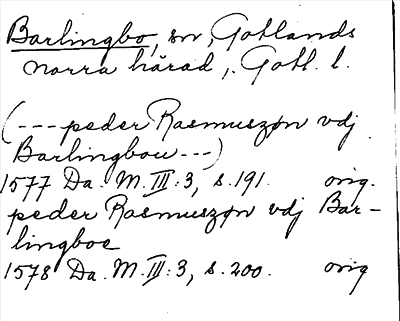 Barlingbo, sn, Gotlands
norra härad, Gotl. l.
(---peder Rasmuszøn vdj
Barlingbou---)
1577 Da. M. III:3, s.191. orig.
peder Rasmuszøn vdj Bar-
lingboe
1578 Da. M. III:3, s.200. orig